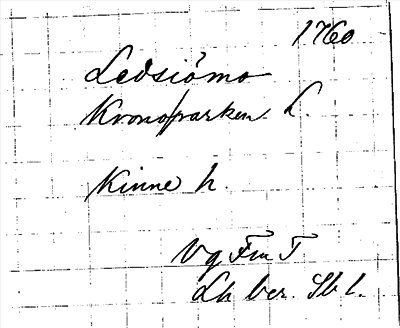 1760
Ledsiömo
Kronoparken. L.
Kinne h.
Vg Fm T
Lh ber. Sb l.